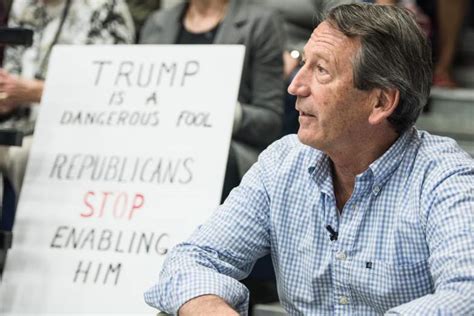 TRUMP
IS A
DANGEROUS FOOL
REPUBLICANS
STOP
ENABLING
HIM